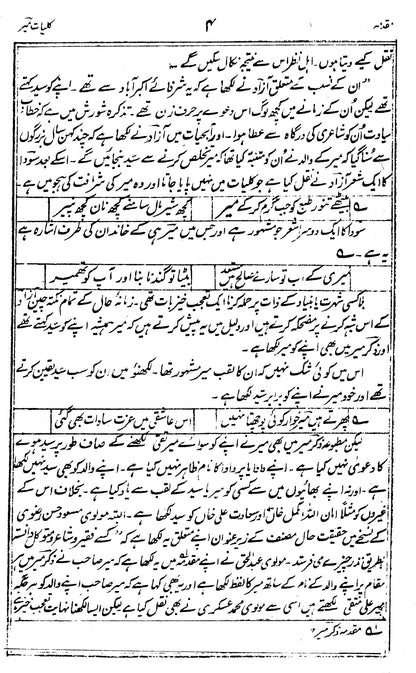 مقدمہ ۴ کلیات میر
نقل کیے دیتا ہوں۔ اہل نظر اس سے نتیجہ نکال سکیں گے۔
"ان کے نسب کے متعلق آزاد نے لکھا ہے کہ یہ شرفائے اکبرآباد سے تھے۔ اپنے کو سید کہتے
تھے لیکن ان کے زمانے میں کچھ لوگ اس دعوے پر حرف زن تھے۔ تذکرہ شورش میں ہے کہ خطاب
سیادت ان کو شاعری کی درگاہ سے عطا ہوا۔ اور آبحیات میں آزاد نے لکھا ہے کہ چند کہن سال بزرگوں
سے سنا گیا کہ میر کے والد نے ان کو متنبہ کیا تھا کہ میر تخلص کرنے سے سید بن جائیں گے۔ اسکے بعد سودا
کا ایک شعر آزاد نے نقل کیا ہے جو کلیات میں نہیں پایا جاتا اور وہ میر کی شرافت کی ہجو میں ہے۔
بیٹھے تنور طبع کو جب گرم کر کے میر کچھ شیرمال سامنے کچھ نان کچھ پنیر
سودا کا ایک دوسرا شعر جو مشہور ہے اور جس میں میر ہی کے خاندان کی طرف اشارہ ہے
یہ ہے۔
میری کے اب تو سارے مصالح ہیں مستعد بیٹا تو گندنا بنا اور آپ کوتھمیر
بلا کسی شہرت یا بنیاد کے ذات پر حملہ کرنا ایک تعجب خیز بات تھی۔ زمانہ حال کے تمام نکتہ چیں آزاد
کے اس شبہ کرنے پر مضحکہ کرتے ہیں اور دلیل میں یہ پیش کرتے ہیں کہ میر ہمیشہ اپنے کو سید کہتے تھے
اور ذکر میر میں بھی اپنے کو میر لکھا ہے۔
اس میں کوئی شک نہیں کہ ان کا لقب میر مشہور تھا۔ لکھنؤ میں ان کو سب سید یقین کرتے
تھے اور خود میر نے اپنے کو برابر سید لکھا ہے۔
پھرتے ہیں میر خوار کوئی پوچھتا نہیں اس عاشقی میں عزت سادات بھی گئی
لیکن مطبوعہ ذکر میر میں بھی میر نے اپنے کو سوائے میر تقی لکھنے کے صاف طور پر سید ہونے
کا دعویٰ نہیں کیا ہے۔ اپنے دادا یا پردادا کا نام ظاہر نہیں کیا ہے۔ اپنے والد کو بھی سید نہیں لکھا
ہے۔ اور نہ اپنے بھائیوں میں سے کسی کو میر یا سید کے لقب سے یاد کیا ہے۔ بخلاف اس کے
غیروں کو مثلاً امان اللہ، مکمل خاں اور سعادت علی خاں کو سید لکھا ہے۔ البتہ مولوی مسعود حسن رضوی
کے نسخے میں حقیقت حال مصنف کے زیر عنوان اپنے متعلق یہ لکھا ہے کہ
بطریق نذر چیزے می فرستد۔ مولوی عبدالحق نے اپنے مقدمہ میں یہ لکھا ہے کہ میر صاحب نے ذکر میر میں ہر
مقام پر اپنے والد کے نام کے ساتھ میر کا لفظ لکھا ہے اور یہ بھی کہا ہے کہ میر صاحب اپنے والد کو ہر جگہ
میر علی متقی لکھتے ہیں اسی سے مولوی محمد عسکری نے بھی نقل کیا ہے لیکن ایسا لکھنا نہایت تعجب خیز ہے
مقدمہ ذکر میر